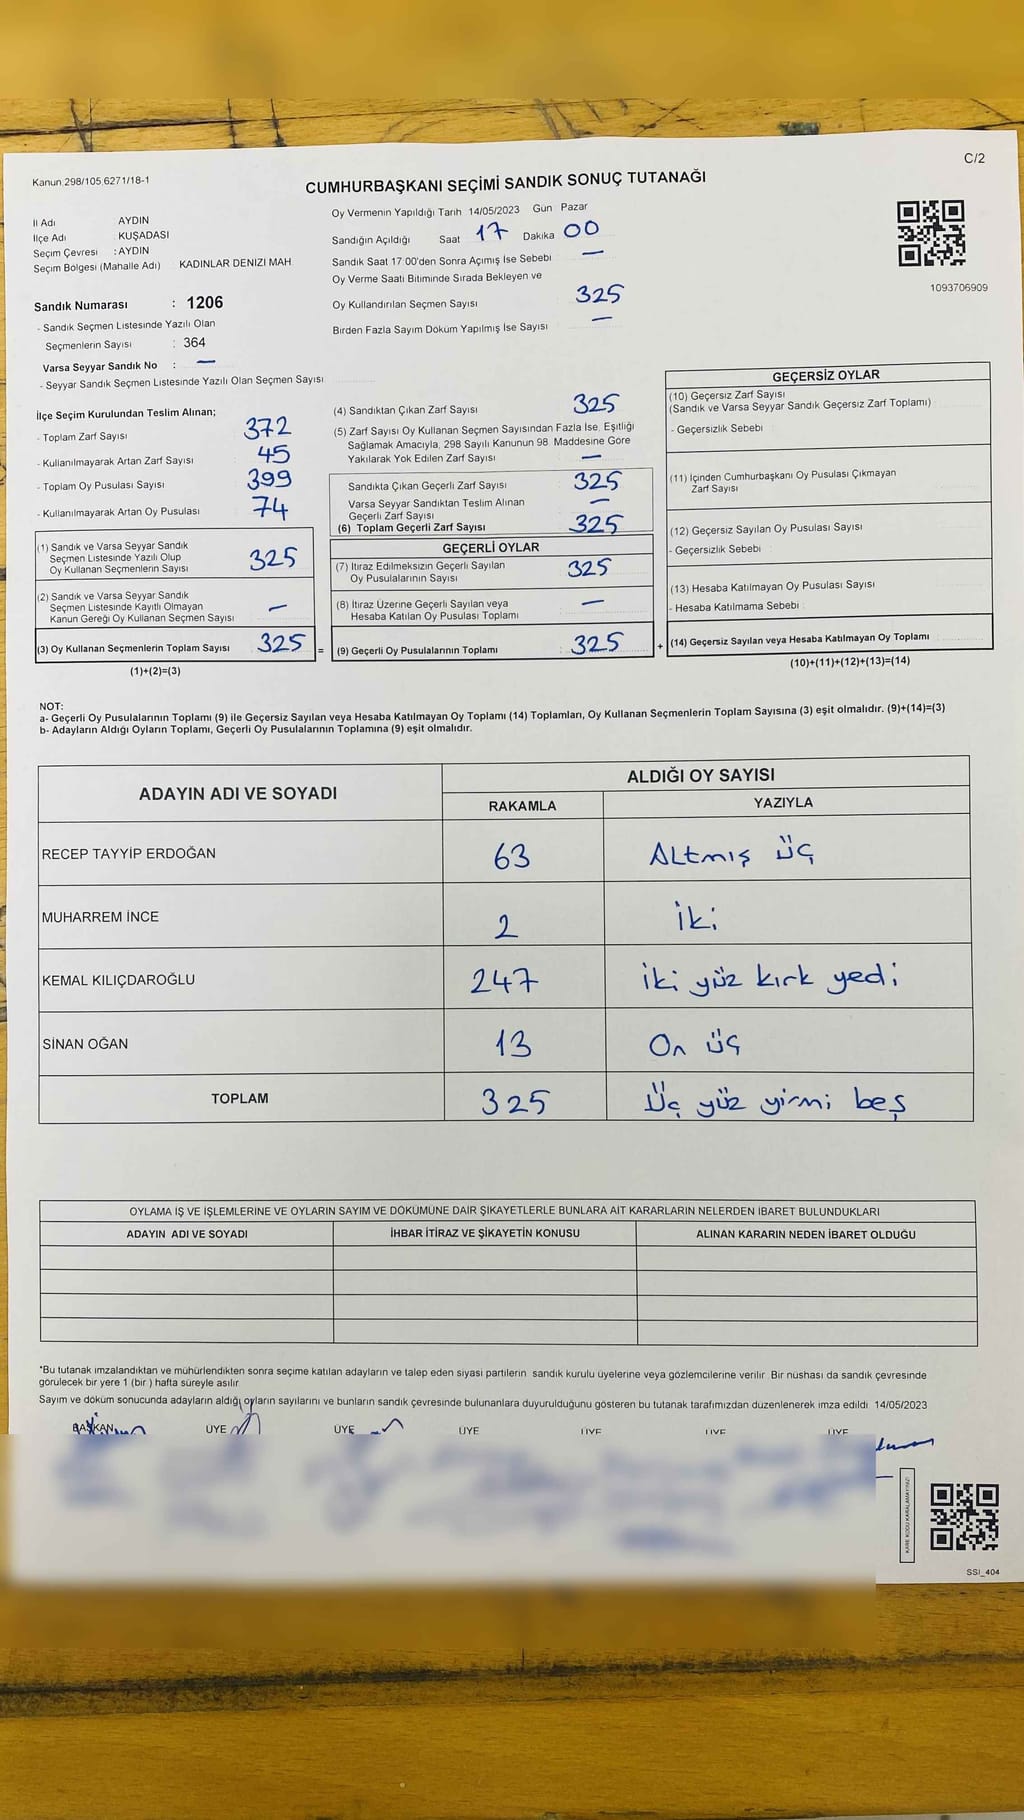 C/2
Kanun 298/105,6271/18-1
CUMHURBAŞKANI SEÇİMİ SANDIK SONUÇ TUTANAĞI
İl Adı AYDIN
İlçe Adı KUŞADASI
Seçim Çevresi : AYDIN
Seçim Bölgesi (Mahalle Adı) KADINLAR DENIZI MAH.
Sandık Numarası : 1206
- Sandık Seçmen Listesinde Yazılı Olan
Seçmenlerin Sayısı : 364
Varsa Seyyar Sandık No : —
- Seyyar Sandık Seçmen Listesinde Yazılı Olan Seçmen Sayısı
Oy Vermenin Yapıldığı Tarih 14/05/2023 Gün Pazar
Sandığın Açıldığı Saat 17 Dakika 00
Sandık Saat 17:00'den Sonra Açımış İse Sebebi —
Oy Verme Saati Bitiminde Sırada Bekleyen ve
Oy Kullandırılan Seçmen Sayısı 325
Birden Fazla Sayım Döküm Yapılmış İse Sayısı —
1093706909
İlçe Seçim Kurulundan Teslim Alınan;
- Toplam Zarf Sayısı 372
- Kullanılmayarak Artan Zarf Sayısı 45
- Toplam Oy Pusulası Sayısı 399
- Kullanılmayarak Artan Oy Pusulası 74
(1) Sandık ve Varsa Seyyar Sandık
Seçmen Listesinde Yazılı Olup
Oy Kullanan Seçmenlerin Sayısı 325
(2) Sandık ve Varsa Seyyar Sandık
Seçmen Listesinde Kayıtlı Olmayan
Kanun Gereği Oy Kullanan Seçmen Sayısı —
(3) Oy Kullanan Seçmenlerin Toplam Sayısı 325 =
(1)+(2)=(3)
(4) Sandıktan Çıkan Zarf Sayısı 325
(5) Zarf Sayısı Oy Kullanan Seçmen Sayısından Fazla İse, Eşitliği
Sağlamak Amacıyla, 298 Sayılı Kanunun 98. Maddesine Göre
Yakılarak Yok Edilen Zarf Sayısı —
Sandıkta Çıkan Geçerli Zarf Sayısı 325
Varsa Seyyar Sandıktan Teslim Alınan
Geçerli Zarf Sayısı —
(6) Toplam Geçerli Zarf Sayısı 325
GEÇERLİ OYLAR
(7) İtiraz Edilmeksizin Geçerli Sayılan
Oy Pusulalarının Sayısı 325
(8) İtiraz Üzerine Geçerli Sayılan veya
Hesaba Katılan Oy Pusulası Toplamı —
(9) Geçerli Oy Pusulalarının Toplamı : 325 +
GEÇERSİZ OYLAR
(10) Geçersiz Zarf Sayısı
(Sandık ve Varsa Seyyar Sandık Geçersiz Zarf Toplamı)
- Geçersizlik Sebebi
(11) İçinden Cumhurbaşkanı Oy Pusulası Çıkmayan
Zarf Sayısı
(12) Geçersiz Sayılan Oy Pusulası Sayısı
- Geçersizlik Sebebi
(13) Hesaba Katılmayan Oy Pusulası Sayısı
- Hesaba Katılmama Sebebi
(14) Geçersiz Sayılan veya Hesaba Katılmayan Oy Toplamı
(10)+(11)+(12)+(13)=(14)
NOT:
a- Geçerli Oy Pusulalarının Toplamı (9) ile Geçersiz Sayılan veya Hesaba Katılmayan Oy Toplamı (14) Toplamları, Oy Kullanan Seçmenlerin Toplam Sayısına (3) eşit olmalıdır. (9)+(14)=(3)
b- Adayların Aldığı Oyların Toplamı, Geçerli Oy Pusulalarının Toplamına (9) eşit olmalıdır.
ADAYIN ADI VE SOYADI ALDIĞI OY SAYISI
RAKAMLA YAZIYLA
RECEP TAYYİP ERDOĞAN 63 Altmış üç
MUHARREM İNCE 2 iki
KEMAL KILIÇDAROĞLU 247 iki yüz kırk yedi
SİNAN OĞAN 13 On üç
TOPLAM 325 Üç yüz yirmi beş
OYLAMA İŞ VE İŞLEMLERINE VE OYLARIN SAYIM VE DÖKÜMÜNE DAİR ŞİKAYETLERLE BUNLARA AİT KARARLARIN NELERDEN İBARET BULUNDUKLARI
ADAYIN ADI VE SOYADI İHBAR İTİRAZ VE ŞİKAYETİN KONUSU ALINAN KARARIN NEDEN İBARET OLDUĞU
*Bu tutanak imzalandıktan ve mühürlendikten sonra seçime katılan adayların ve talep eden siyasi partilerin sandık kurulu üyelerine veya gözlemcilerine verilir. Bir nüshası da sandık çevresinde
görülecek bir yere 1 (bir) hafta süreyle asılır
Sayım ve döküm sonucunda adayların aldığı oyların sayılarını ve bunların sandık çevresinde bulunanlara duyurulduğunu gösteren bu tutanak tarafımızdan düzenlenerek imza edildi 14/05/2023
BAŞKAN ÜYE ÜYE ÜYE ÜYE ÜYE ÜYE
KARE KODU KARALAMAYINIZ!
SSI_404